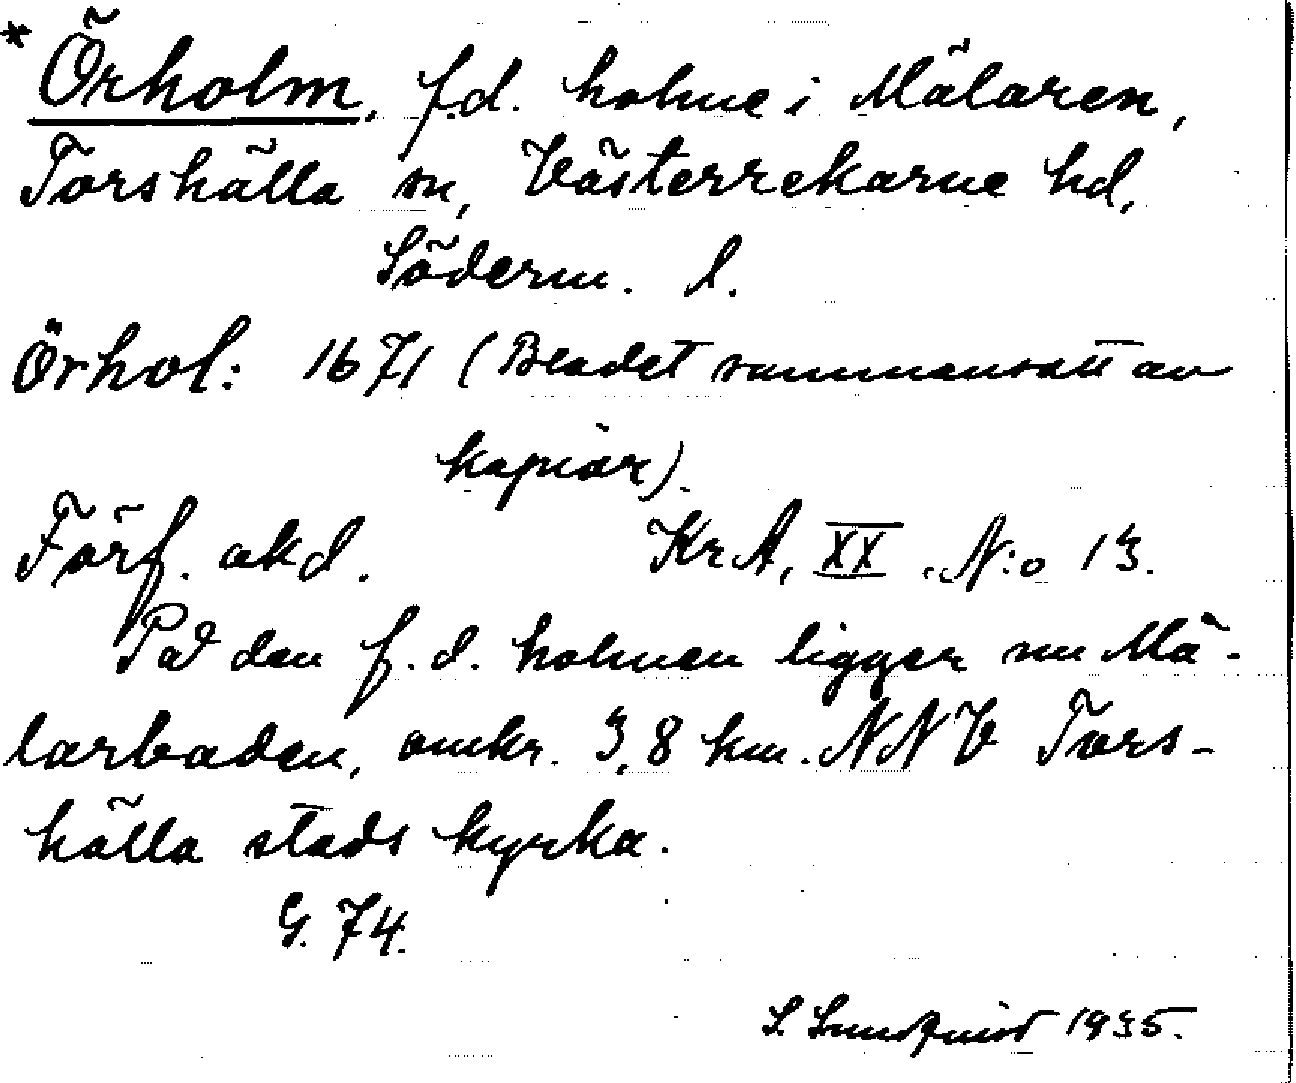 * Örholm, f.d. holme i Mälaren,
Torshälla sn, Västerrekarne hd,
Söderm. l.
Örhol: 1671 (Bladet sammansatt av
kopiör).
Förf. okd. KrA, XX. N:o 13.
På den f.d. holmen ligger nu Mä-
larbaden, omkr. 3,8 km. NNV Tors-
hälla stads kyrka.
G. 74.
S. Sundquist 1935.